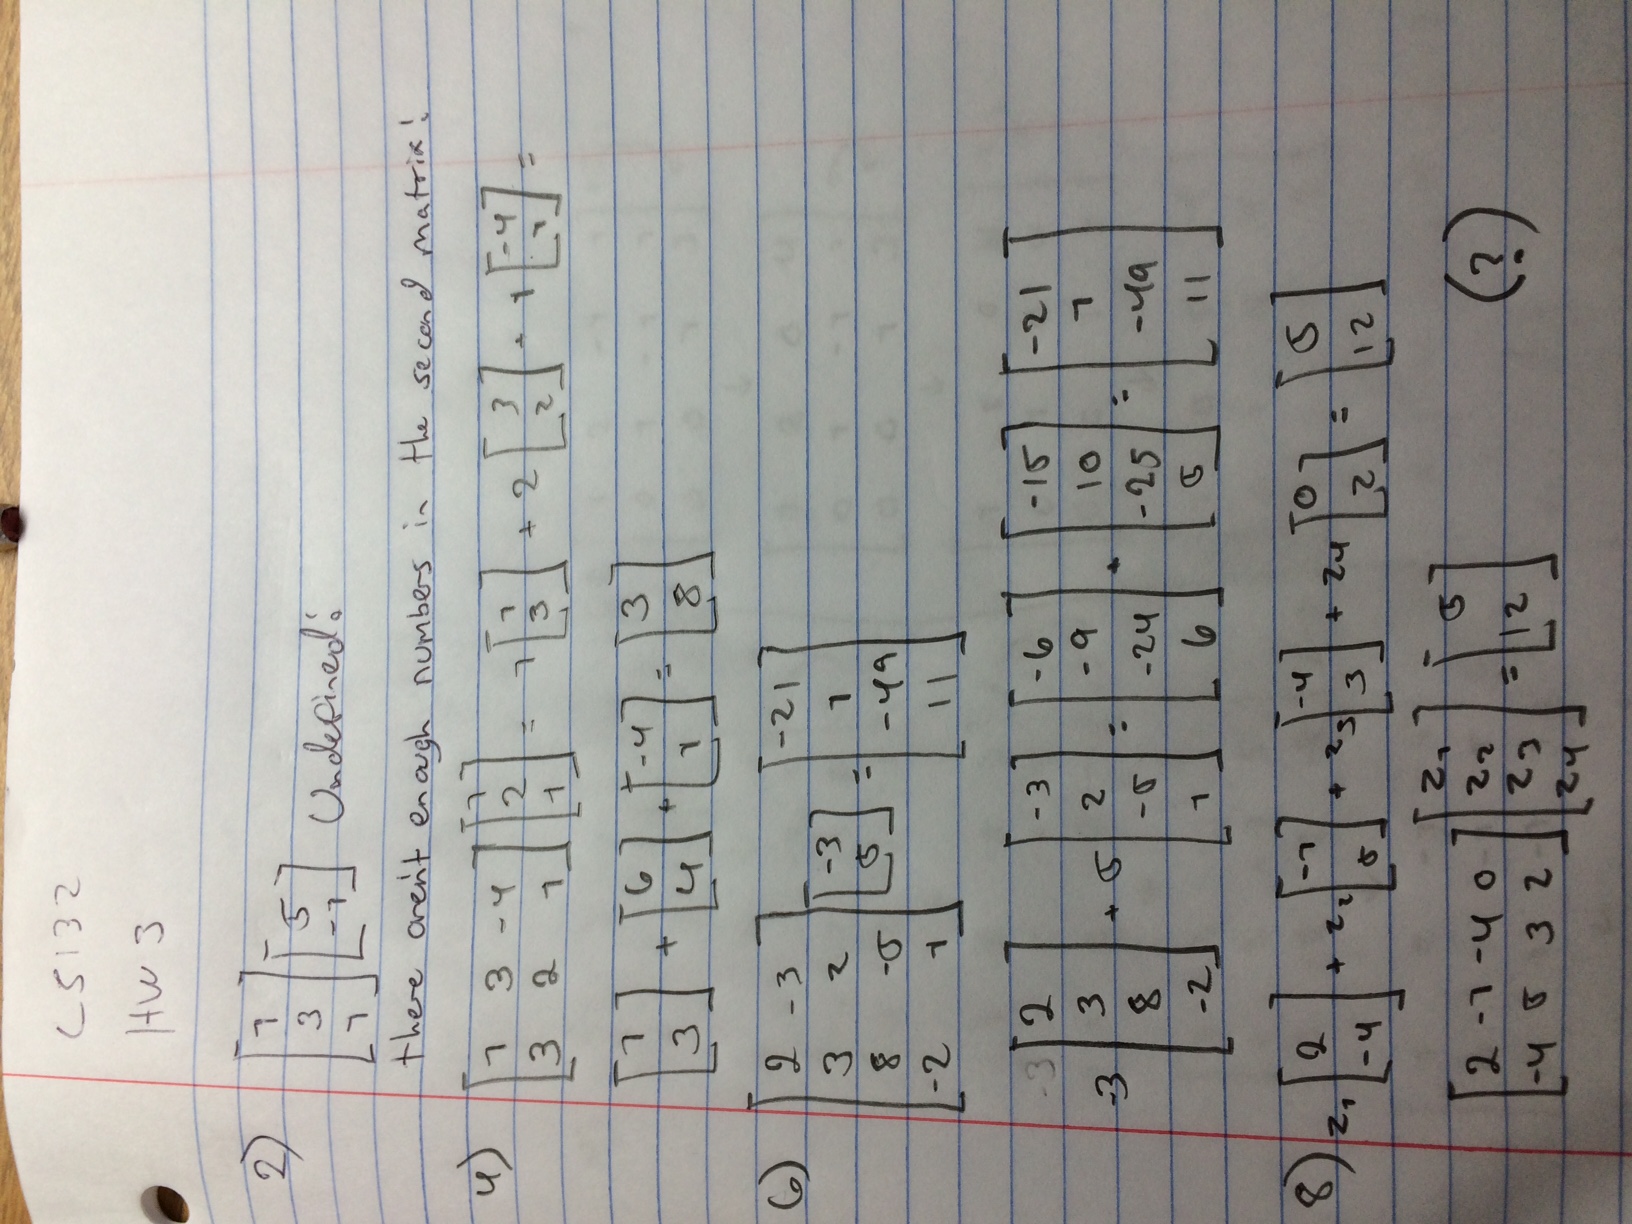 CS132
HW 3
2) [1 3 1] [5 -1] Undefined:
there aren't enough numbers in the second matrix!
4) [1 3 -4
3 2 1] [1 2 1] = 1 [1 3] + 2 [3 2] + 1 [-4 1] =
[1 3] + [6 4] + [-4 1] = [3 8]
6) [2 -3
3 2
8 -5
-2 1] [-3 5] = [-21 1 -49 11]
-3 [2 3 8 -2] + 5 [-3 2 -5 1] = [-6 -9 -24 6] + [-15 10 -25 5] = [-21 1 -49 11]
8) z1 [2 -4] + z2 [-1 5] + z3 [-4 3] + z4 [0 2] = [5 12]
[2 -1 -4 0
-4 5 3 2] [z1 z2 z3 z4] = [5 12] (?)